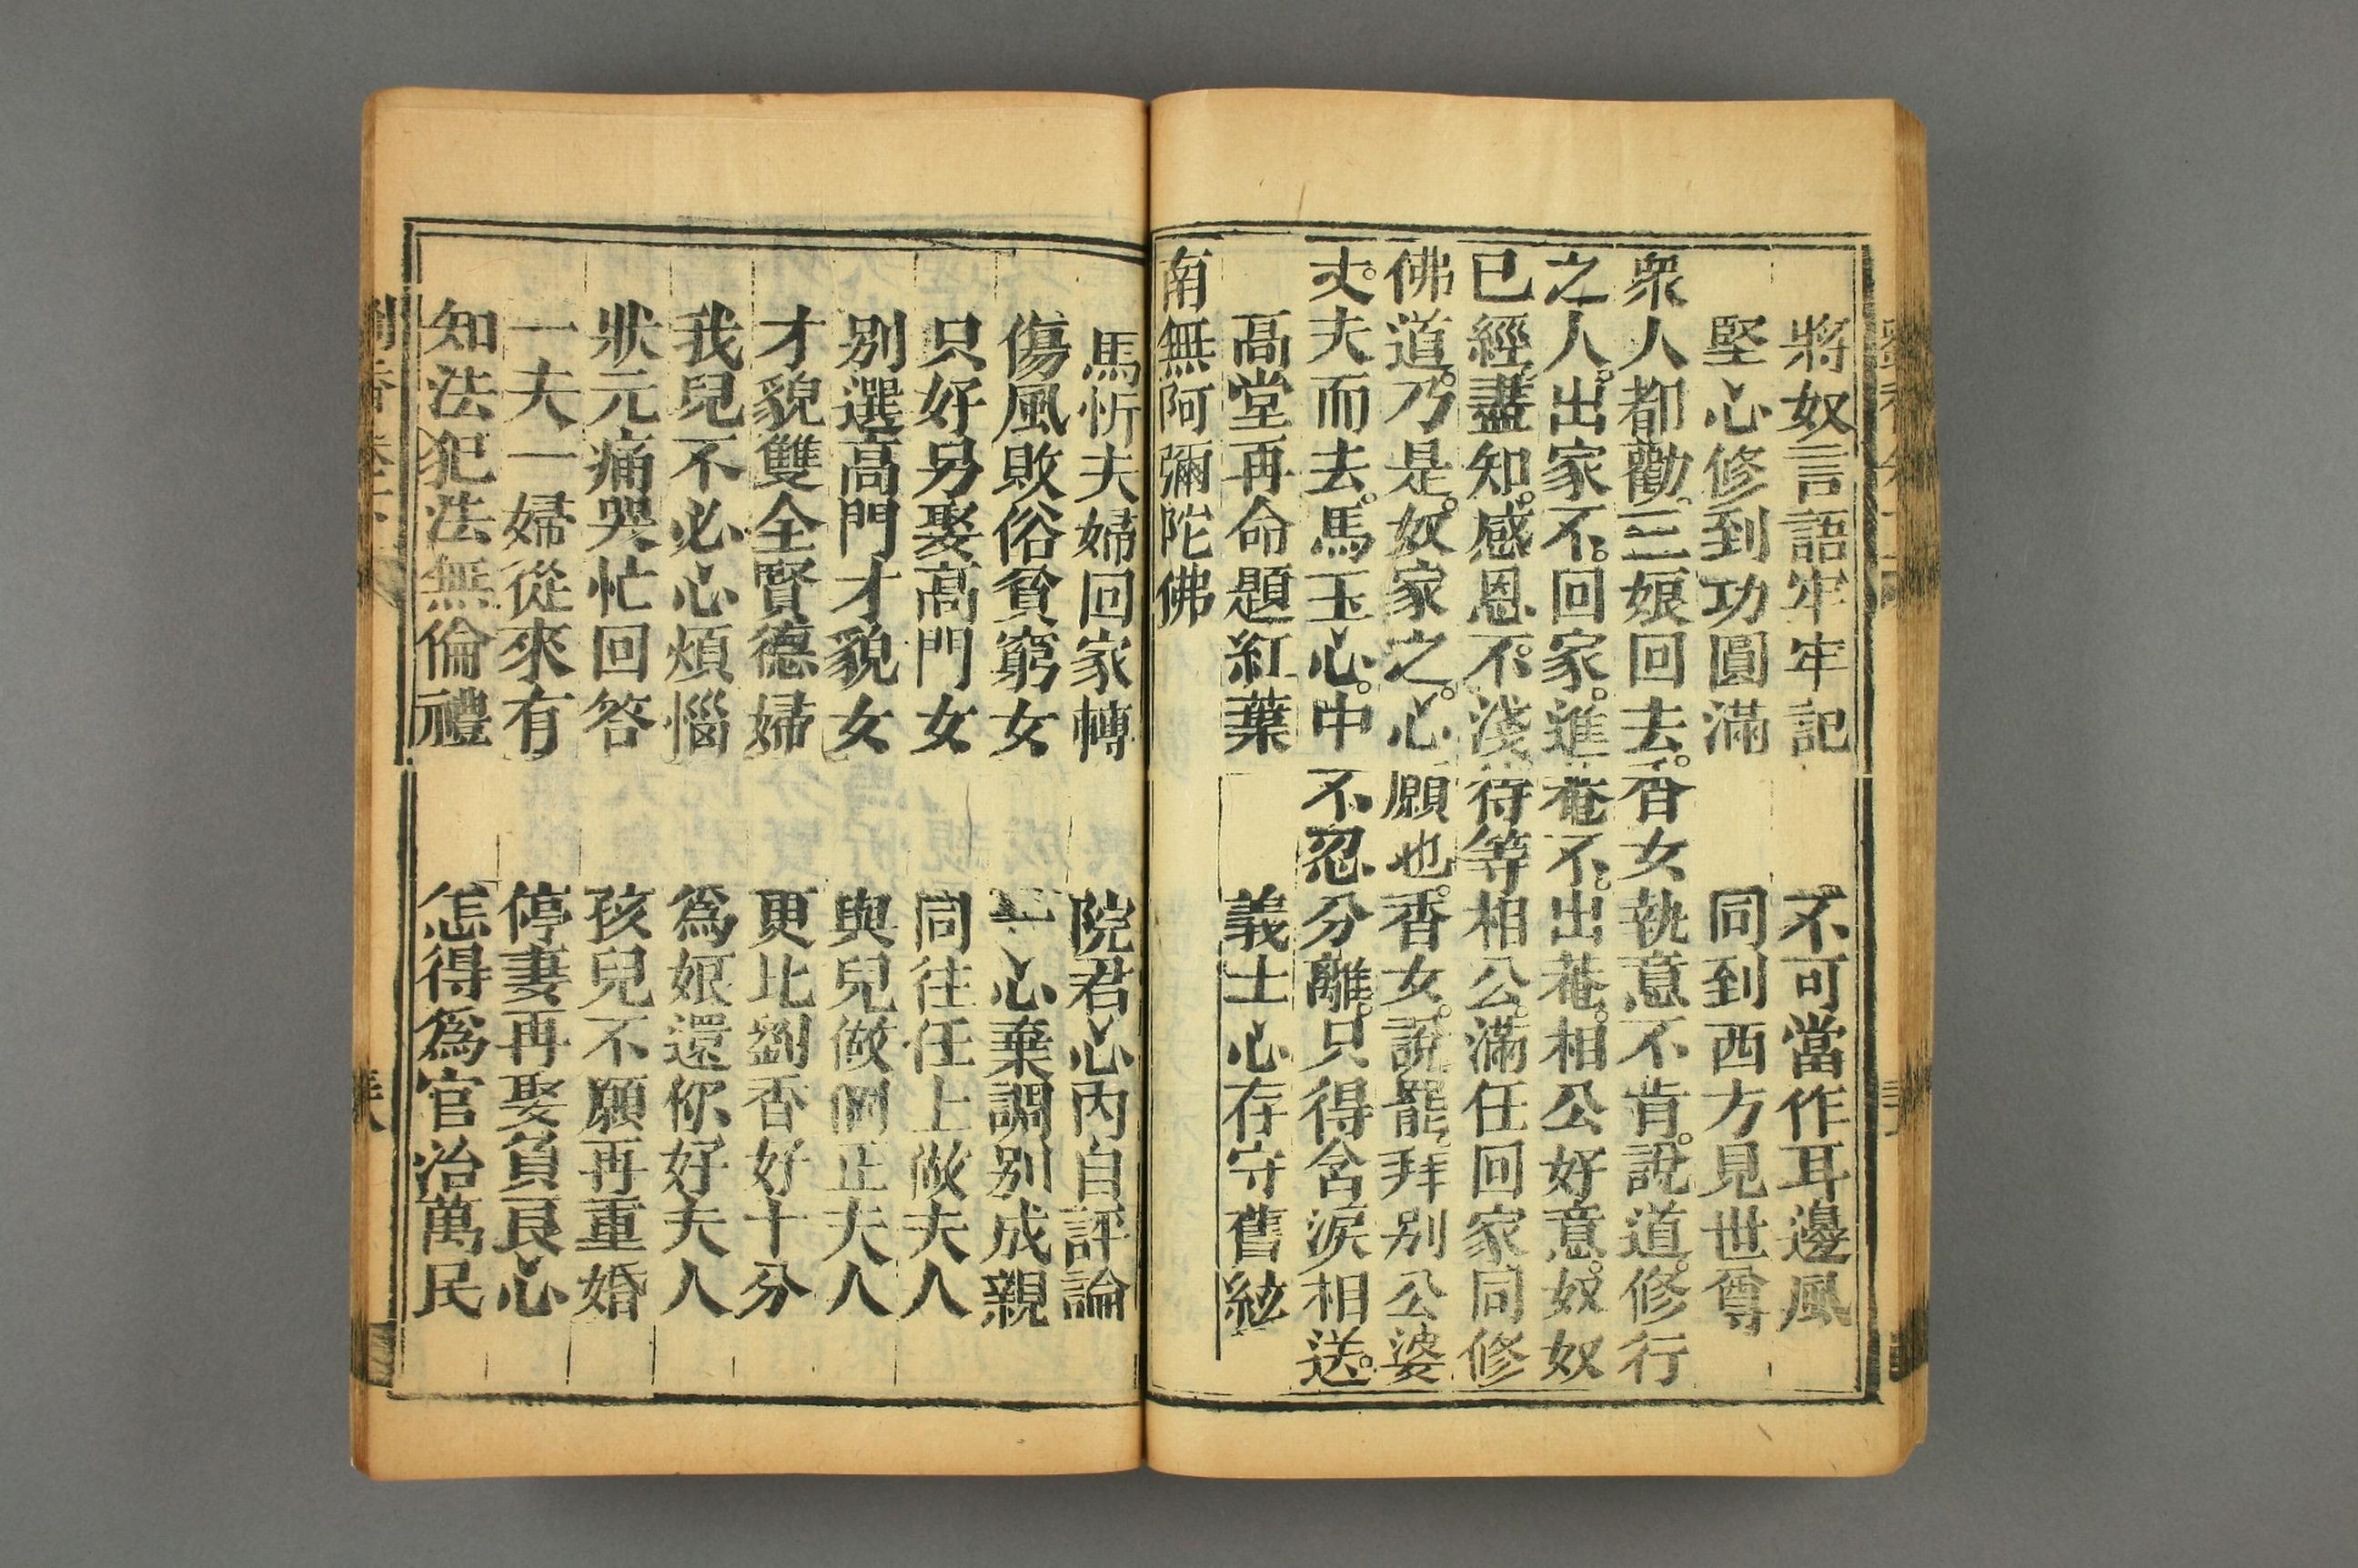 將奴言語牢牢記　不可當作耳邊風
堅心修到功圓滿　同到西方見世尊
衆人都勸。三娘回去。香女執意不肯。說道。修行
之人。出家不。回家。進菴不。出菴。相公好意。奴奴
已經。盡知。感恩。不淺。待等相公。滿任回家同修
佛道。乃是。奴家之。心願也。香女。說罷。拜别公婆
丈。夫而去。馬玉心。中不忍分離。只得含淚相送。
高堂再命題紅葉　義士心存守舊絃
南無阿彌陀佛
馬忻夫婦回家轉　院君心內自評論
傷風敗俗貧窮女　心棄調别成親
只好另娶高門女　同往任上做夫人
别選高門才貌女　與兒做個正夫人
才貌雙全賢德婦　更比劉香好十分
我兒不必心煩惱　爲娘還你好夫人
狀元痛哭忙回答　孩兒不願再重婚
一夫一婦從來有　停妻再娶負良心
知法犯法無倫禮　怎得爲官治萬民